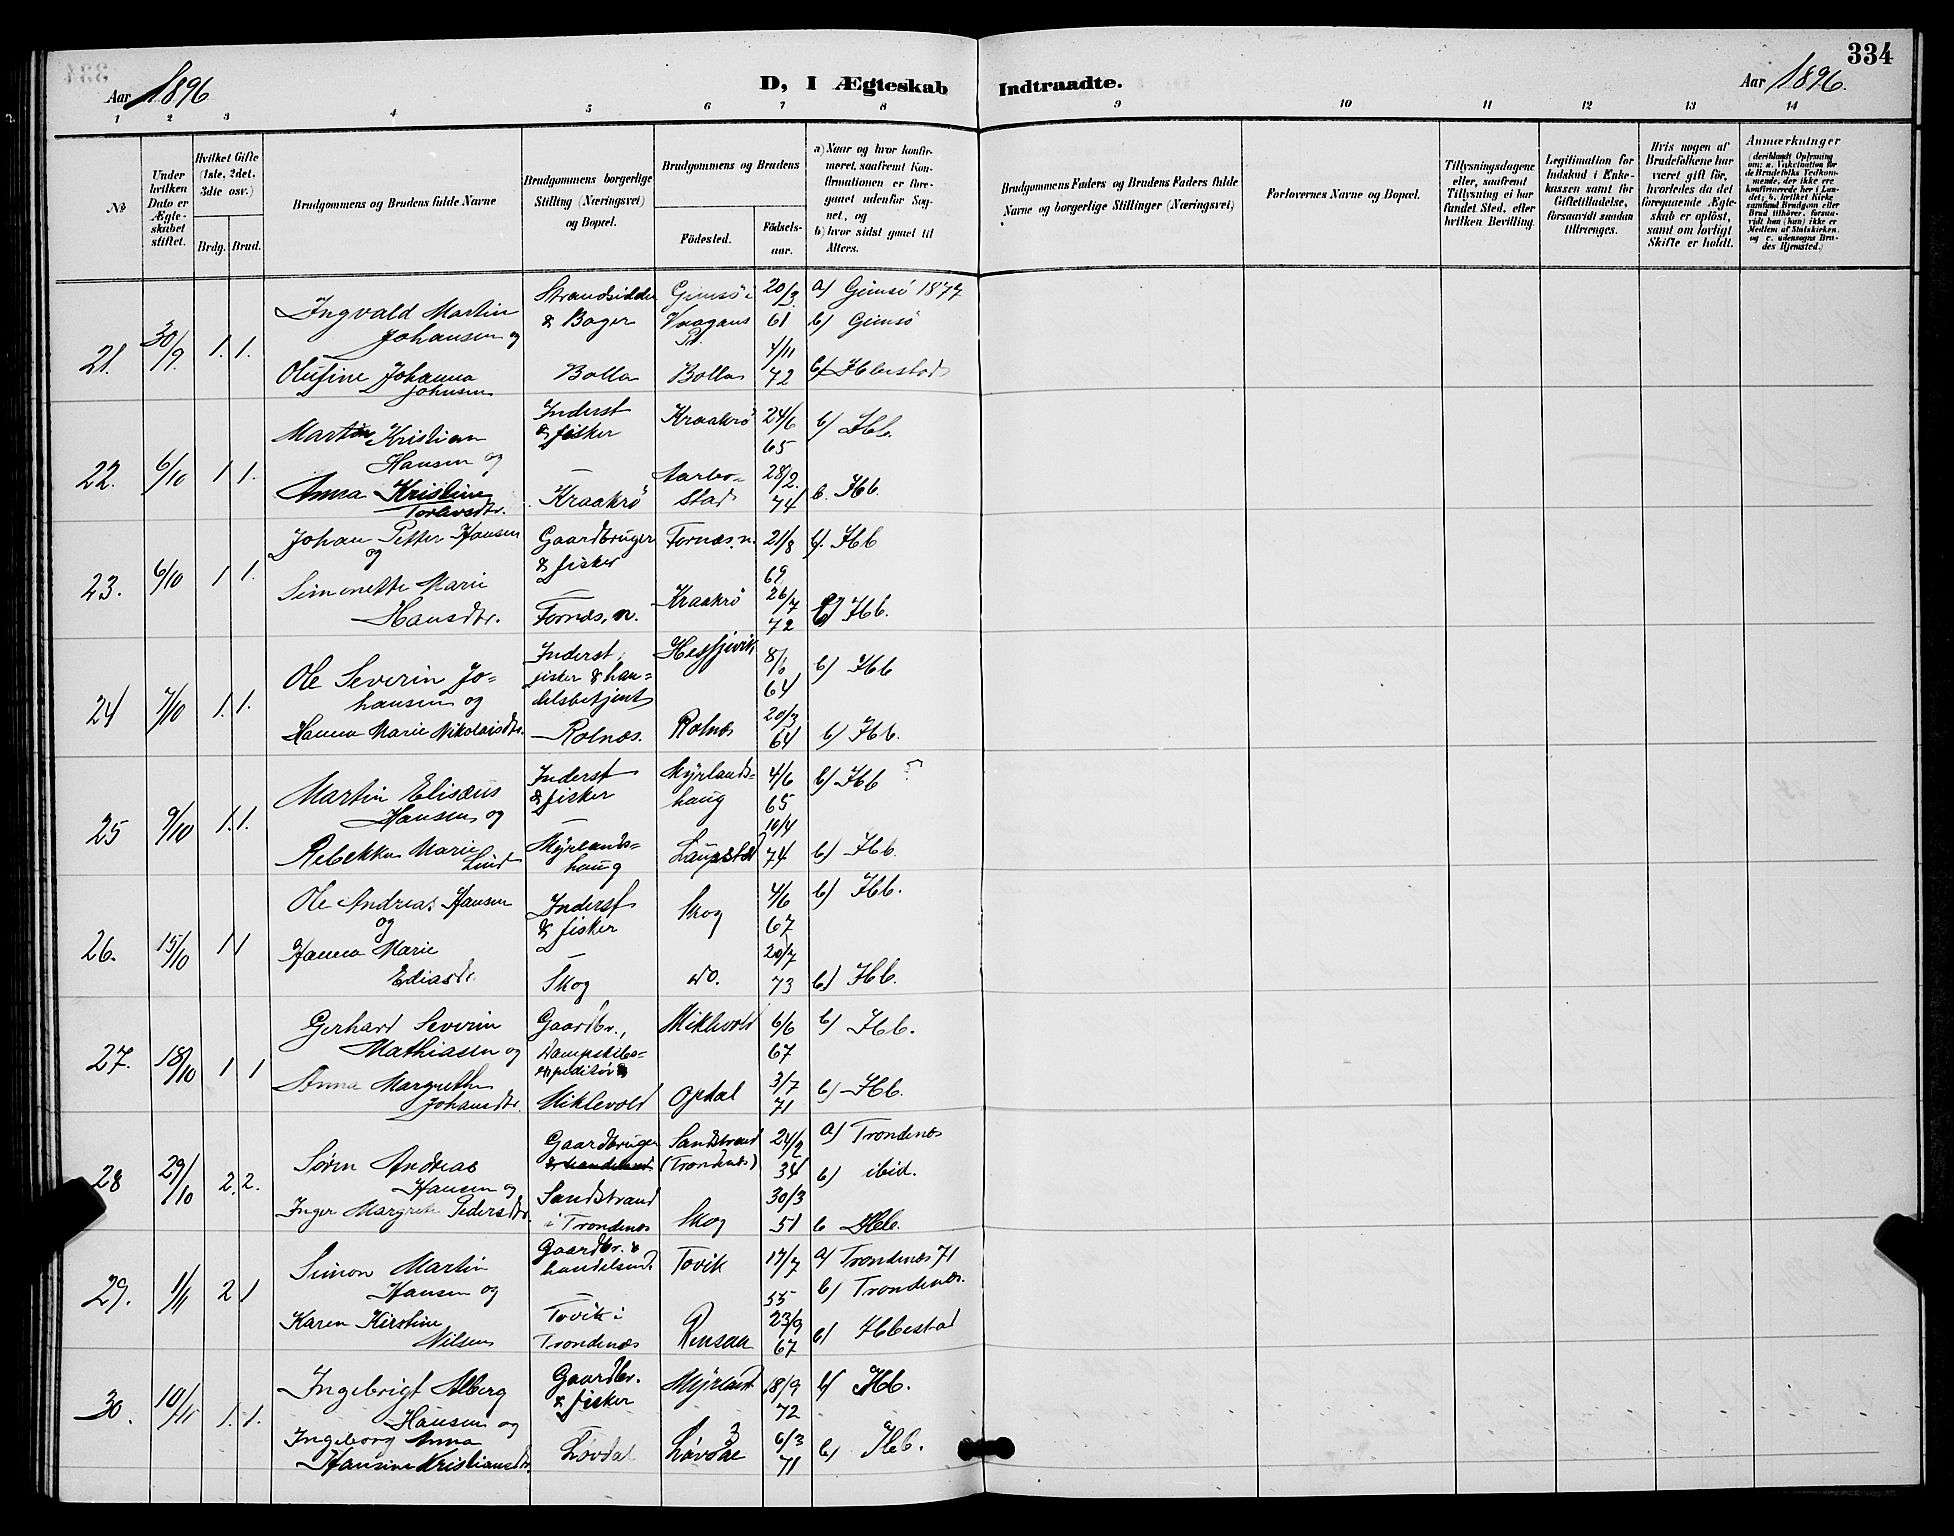 334
Aar 1896
D, I Ægteskab Indtraadte.
Aar 1896.
1 2 3 4 5 6 7 8 9 10 11 12 13 14
№
Under hvilken Dato er Ægteskabet stiftet.
Hvilket Gifte (1ste, 2det, 3die osv.)
Brdg. Brud.
Brudgommens og Brudens fulde Navne
Brudgommens borgerlige Stilling (Næringsvei) og Bopæl.
Brudgommens og Brudens
Fødested.
Fødselsaar.
a) Naar og hvor konfirmeret, saafremt Konfirmationen er foregaaet udenfor Sognet, og
b) hvor sidst gaaet til Alters.
Brudgommens Faders og Brudens Faders fulde Navne og borgerlige Stillinger (Næringsvei)
Forlovernes Navne og Bopæl.
Tillysningsdagene eller, saafremt Tillysning ei har fundet Sted, efter hvilken Bevilling.
Legitimation for Indskud i Enkekassen samt for Giftetilladelse, forsaavidt saadan tiltrænges.
Hvis nogen af Brudefolkene har været gift før, hvorledes da det foregaaende Ægteskab er opløst, samt om lovligt Skifte er holdt.
Anmærkninger
(deriblandt Oplysning om: a. Vakcination for de Brudefolks Vedkommende, der ikke ere konfirmerede her i Landet; b. hvilket Kirkesamfund Brudgom eller Brud tilhører, forsaavidt han (hun) ikke er Medlem af Statskirken, og c. udensogns Brudes Hjemsted.)
21. 30/9. 1. 1.
Ingvald Martin Johansen og
Strandsidder & Bager
Gimsö i Vaagans Pr.
20/3 61
a) Gimsö 1877
b) Gimsö
Olufine Johanna Johnsen
Bolla
Bolla
4/11 72
b) Ibbestad
22. 6/10 1 1.
Martin Kristian Hansen og
Inderst og fisker
Kraakrö
24/6 65
b) Ibb.
Anna Kristine Torlevsdtr.
Kraakrö
Aarbostad
28/2. 74
b. Ibb.
23. 6/10 1 1.
Johan Petter Hansen og
Gaardbruger & fisker
Fornæs, n.
21/8 69
b). Ibb
Simonette Marie Hansdtr.
Fornæs, n.
Kraakrö
26/7 72
b) Ibb.
24 7/10 1. 1.
Ole Severin Johansen og
Inderst, fisker & handelsbetjent
Hesfjevik
64
b) Ibb
Hanna Marie Nikolaisdtr.
Rolnæs.
Rolnæs
20/3 64
b) Ibb.
25 9/10 1. 1.
Martin Elisæus Hansen og
Inderst & fisker
Myrlandshaug
4/6 65
b) Ibb
Rebekka Marie Lind
Myrlandshaug
Laupstad
10/4 74
b) Ibb.
26. 15/10 1 1
Ole Andreas Hansen og
Inderst & fisker
Skog
4/6 67
b) Ibb.
Hanna Marie Ediasdtr.
Skog
do.
20/7 73
b) Ibb.
27. 18/10 1 1
Gerhard Severin Mathiasen og
Gaardbr., Dampskibsexpeditör
Miklevold
6/6 67
b) Ibb.
Anna Margrethe Johansdtr.
Miklevold
Opdal
3/7 71
b) Ibb.
28 29/10 2. 2.
Sören Andreas Hansen og
Gaardbruger
Sandstrand (Trondenæs)
24/2 34
a) Trondenæs
b) ibid.
Inger Margrete Pedersdtr.
Sandstrand i Trondenæs
Skog
30/3 51
b Ibb.
29. 1/11 2 1
Simon Martin Hansen og
Gaardbr. & handelsmd.
Tovik
17/7 55
a) Trondenæs 71
b) Trondenæs.
Karen Kirstine Nilsen
Tovik i Trondenæs
Rensaa
23/9 67
b) Ibbestad
30. 10/11 1. 1.
Ingebrigt Alberg Hansen og
Gaardbr. & fisker
Myrland
18/9 72
b) Ibb.
Ingeborg Anna Hansine Kristiansdtr.
Lövdal
Lövdal
6/3 71
b) Ibb.